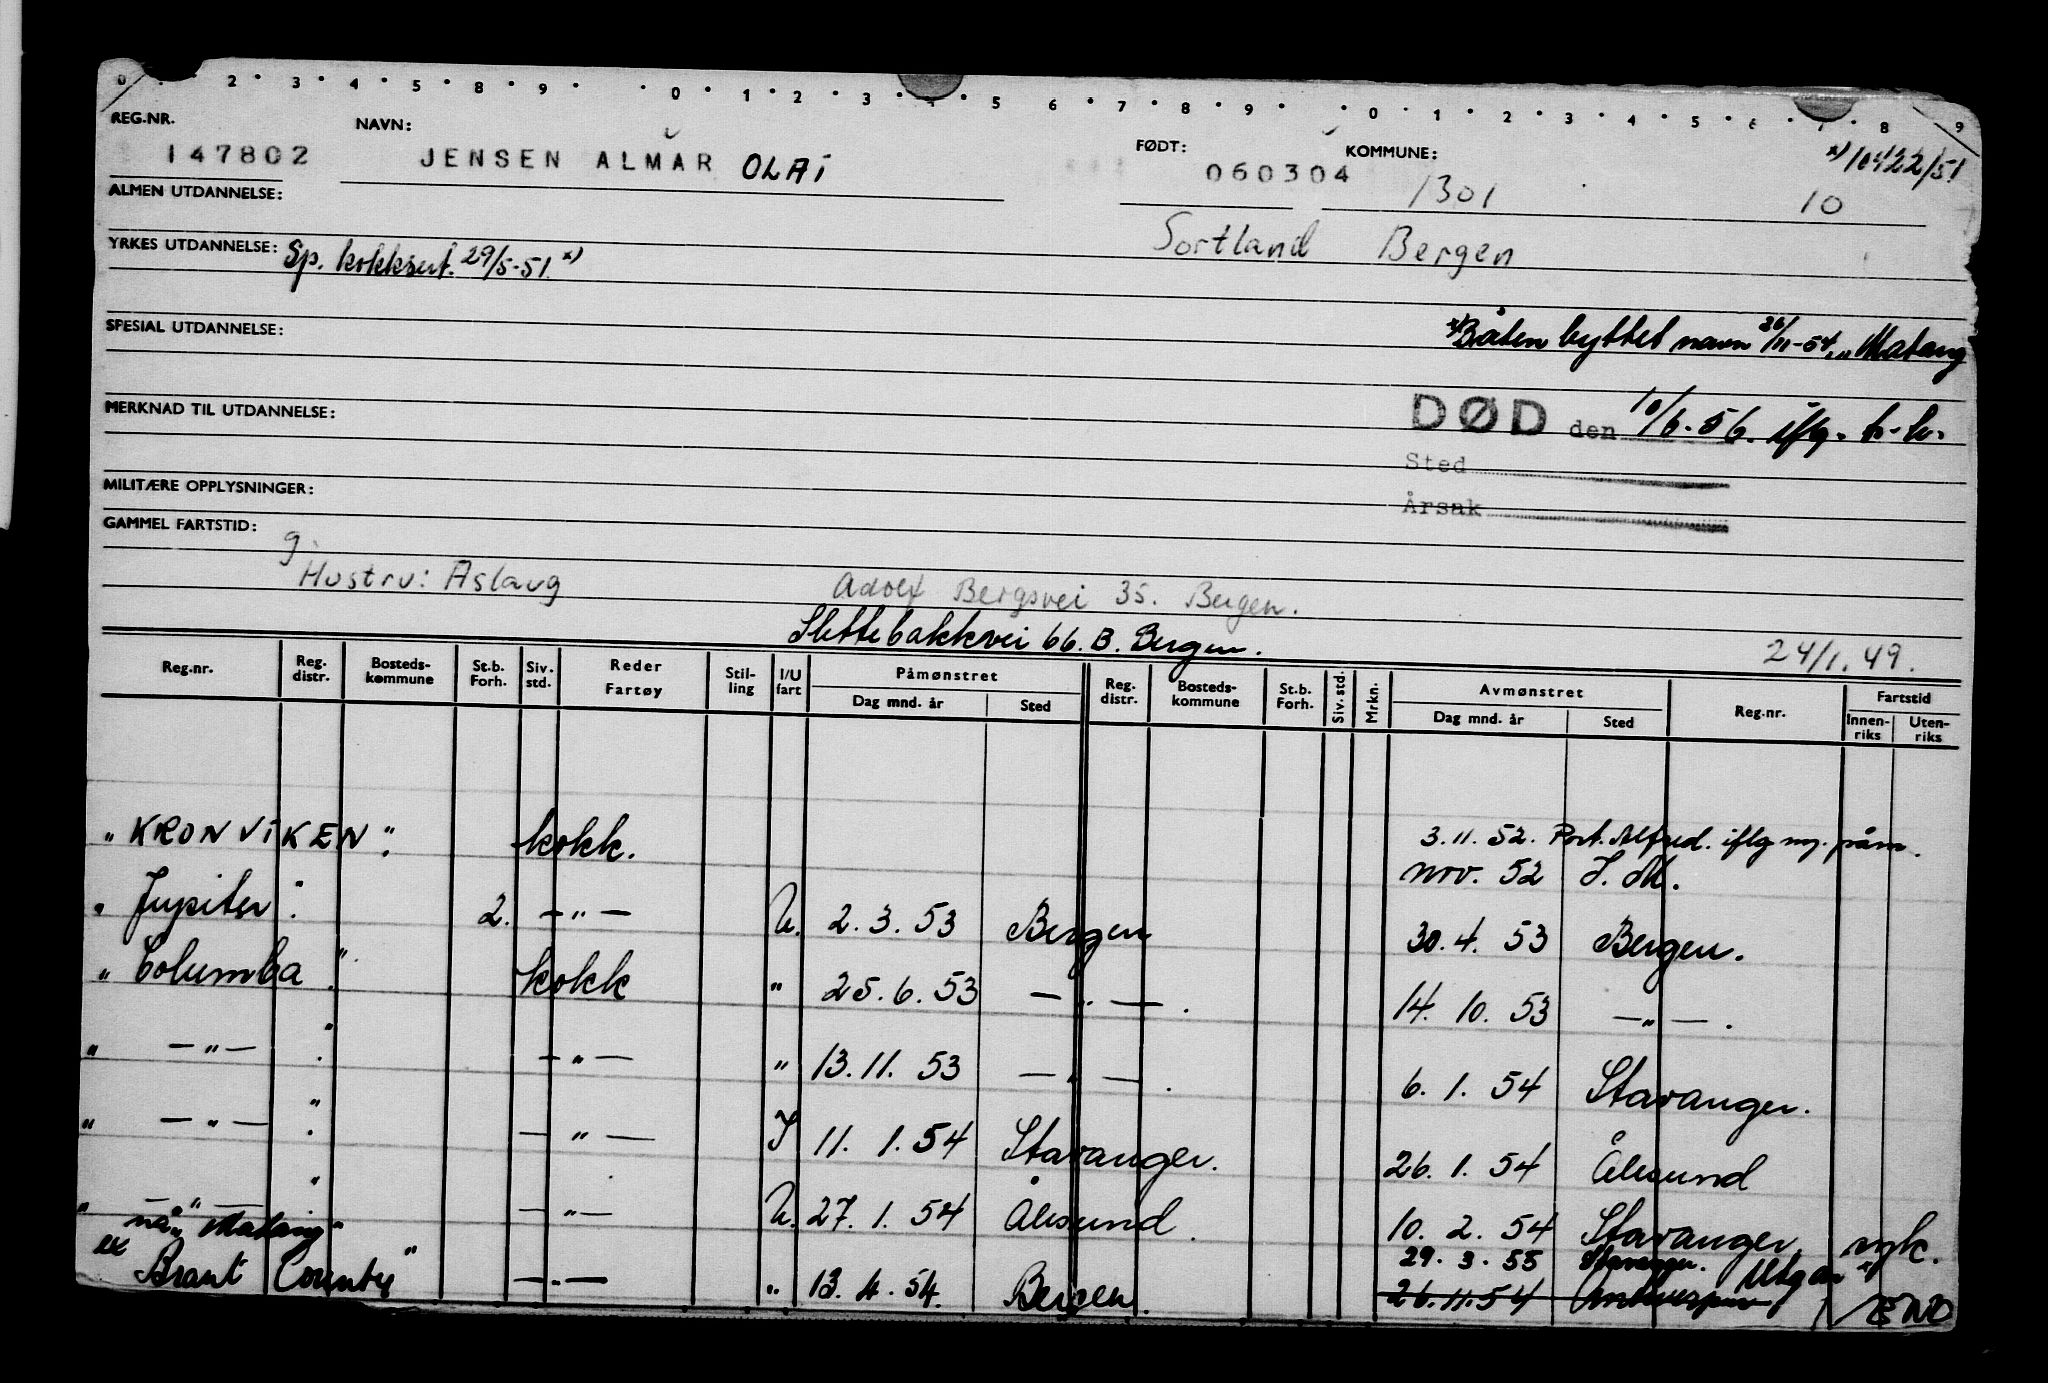 0 2 3 4 5 8 9 0 1 2 3 5 6 7 8 9 0 1 2 3 4 5 8 9
REG.NR. NAVN: FØDT: KOMMUNE:
147802 JENSEN ALMAR OLAI 060304 1301 10
x) 10422/51
ALMEN UTDANNELSE:
Sortland Bergen
YRKES UTDANNELSE: Sp. kokksert. 29/5-51. x)
SPESIAL UTDANNELSE:
x) Båten byttet navn 26/11-54 „Matang
MERKNAD TIL UTDANNELSE:
DØD den 10/6-56. iflg.
Sted
MILITÆRE OPPLYSNINGER:
Årsak
GAMMEL FARTSTID:
g.
Hustru: Aslaug Adolf Bergsvei 35. Bergen.
Slettebakkvei 66. B. Bergen.
24/1. 49.
Reg.nr. Reg. distr. Bosteds-kommune St.b. Forh. Siv. std. Reder Fartøy Stil-ling I/U fart Påmønstret Dag mnd. år Sted Reg. distr. Bosteds-kommune St.b. Forh. Siv. std. Mrkn. Avmønstret Dag mnd. år Sted Reg.nr. Fartstid Innen-riks Uten-riks
„KRONVIKEN". kokk. 3.11.52. Port. Alfred. iflg ny. påm.
nov. 52 S. M.
„Jupiter". 2. —„— U. 2.3.53 Bergen 30.4.53 Bergen.
„Columba". kokk „ 25.6.53 —„—. 14.10.53 —„—.
„ —„— ". —„— „ 13.11.53 —„—. 6.1.54 Stavanger.
„ —„— ". —„— I 11.1.54 Stavanger. 26.1.54 Ålesund
„ —„— " —„— U. 27.1.54 Ålesund. 10.2.54 Stavanger. mgk.
nå „Matang" 29.3.55 Stavanger. Utgar x)
ex Brant County" —„— „ 13.4.54. Bergen. 26.11.54 Antwerpen